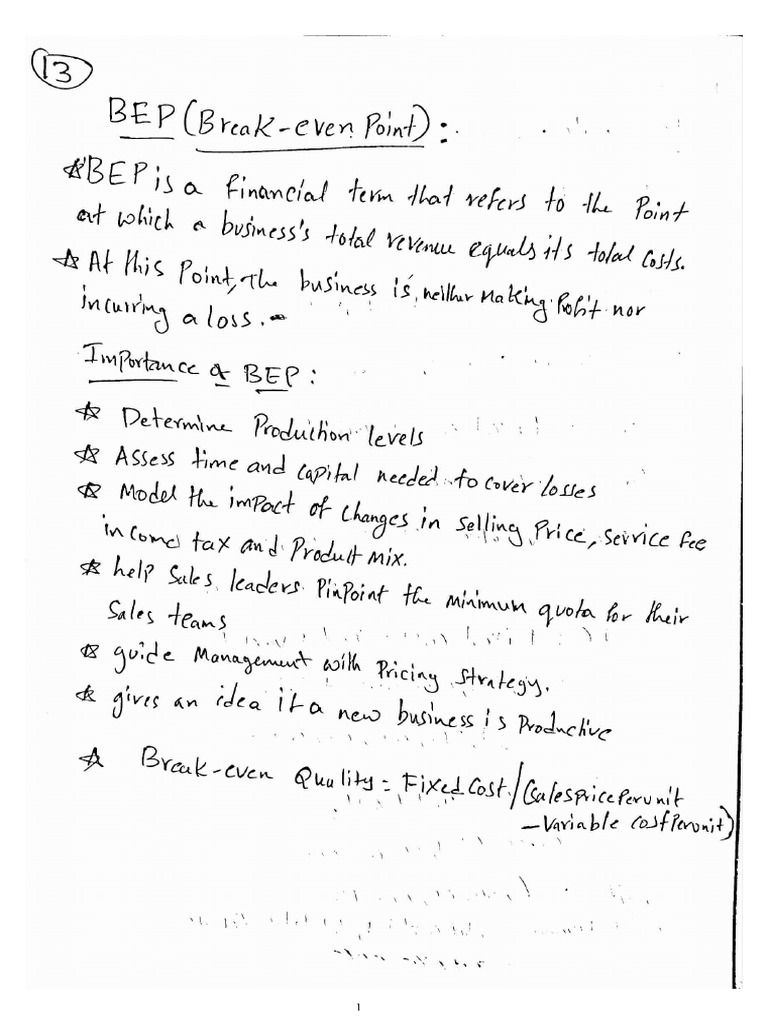 13
BEP (Break-even Point):
☆ BEP is a financial term that refers to the Point
at which a business's total revenue equals its total costs.
☆ At this Point, The business is, neither making Profit nor
incurring a loss.
Importance of BEP:
☆ Determine Production levels
☆ Assess time and capital needed to cover losses
☆ Model the impact of changes in selling Price, service fee
income tax and Product mix.
☆ help Sales leaders PinPoint the minimum quota for their
Sales teams
☆ guide Management with Pricing strategy.
☆ gives an idea if a new business is Productive
☆ Break-even Quality = Fixed Cost / (Sales price Per unit
- Variable cost Per unit)
1